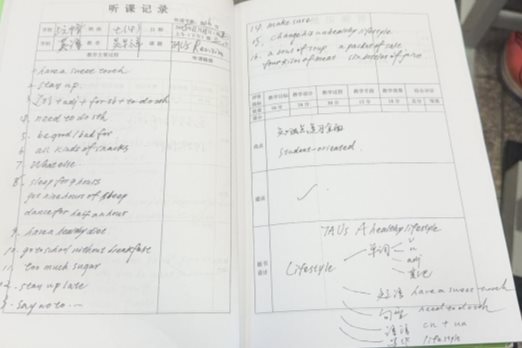 听课记录
学校
班级
日期
学科
英语
课题
教学主要过程
听课随想
1. have a sweet tooth
2. stay up
3. It's + adj + for sb + to do sth
4. need to do sth
5. be good/bad for
6. all kinds of snacks
7. What else
8. sleep for 9 hours
get nine hours of sleep
dance for half an hour
9. have a healthy diet
10. go to school without breakfast
11. too much sugar
12. stay up late
13. Say no to …
14. make sure
15. change a unhealthy lifestyle
16. a bowl of soup a packet of salt
four tins of meat six bottles of juice
教学目标 教学设计 教学过程 教学手段 教学效果 综合评价
优点
知识点复习全面
student-oriented
建议
板书设计
7A U5 A healthy lifestyle
Lifestyle
单词
n
v
adj
短语 have a sweet tooth
句型 need to do sth
语法 cn + un
lifestyle